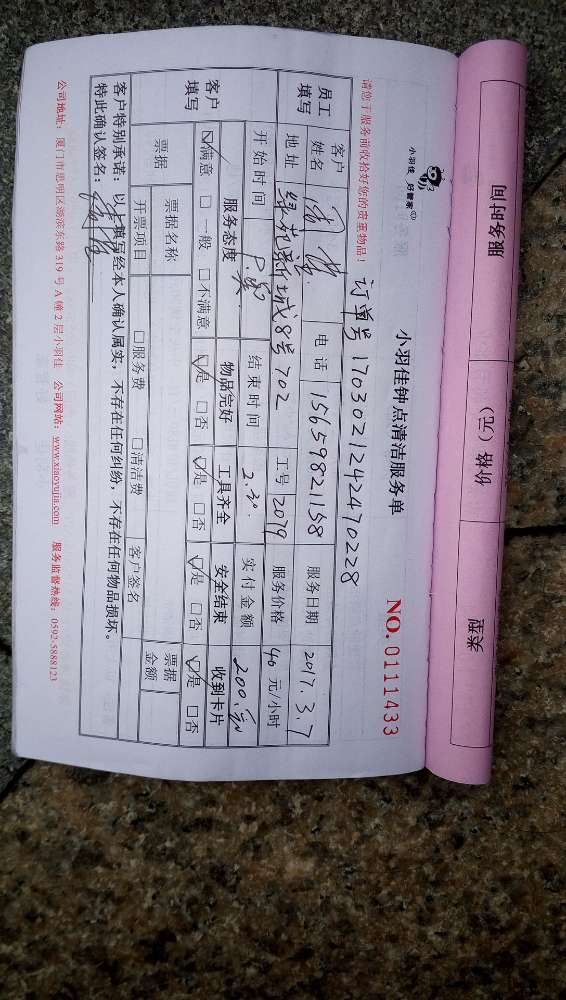 服务时间 价格(元) 类型
小羽佳 好管家
小羽佳钟点清洁服务单
NO. 0111433
订单号 1703021242470228
请您于服务前收拾好您的贵重物品!
员工填写 客户姓名 电话 15659821158 服务日期 2017.3.7
地址 绿苑新城8号702 工号 2079 服务价格 40 元/小时
开始时间 结束时间 2.30. 实付金额 200.元
客户填写 服务态度 物品完好 工具齐全 安全结束 收到卡片
☑满意 □一般 □不满意 ☑是 □否 ☑是 □否 ☑是 □否 ☑是 □否
票据 票据名称 票据金额
开票项目 □服务费 □清洁费 客户签名
客户特别承诺:以上填写经本人确认属实,不存在任何纠纷,不存在任何物品损坏。
特此确认签名:
公司地址:厦门市思明区湖滨东路319号A幢2层小羽佳 公司网站:www.xiaoyujia.com 服务监督热线:0592-5888123